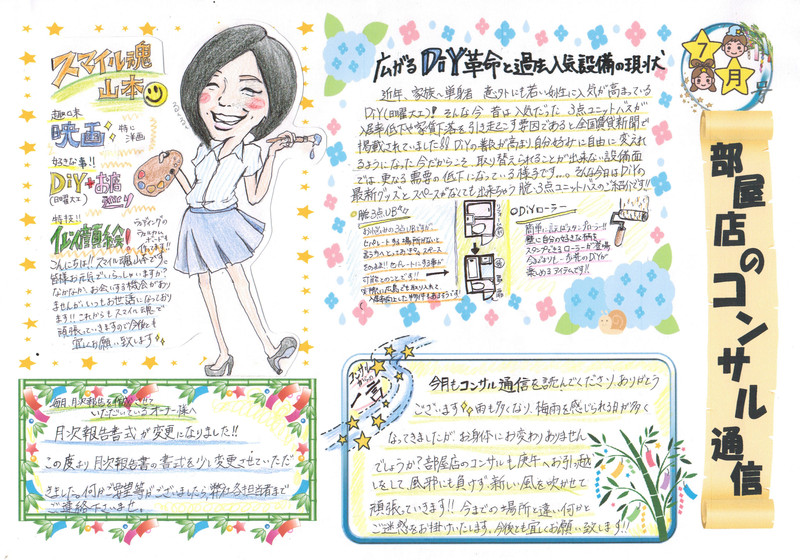 7
月
号
部屋店のコンサル通信
スマイル魂
山本
趣味
映画 特に
洋画
好きな事!!
DiY+お店
(日曜大工) 巡り
特技!!
似顔絵!
こんにちは!! スマイル魂山本です。
皆様お元気でいらっしゃいますか?
なかなかお会いする機会があり
ませんがいつもお世話になっており
ます!! これからもスマイル魂で
頑張っていきますので今後とも
宜しくお願い致します
広がるDiY革命と過去人気設備の現状
近年、家族へ単身者 意外にも若い女性に人気が高まっている
DiY(日曜大工)!! そんな今 昔は人気だった 3点ユニットバスが
入居率低下や家賃下落を引き起こす要因であると全国賃貸新聞で
掲載されていました!! DiYの数が高まり自分好みに自由に変えれ
るようになった今だからこそ、取り替えられることが出来ない設備面
では、更なる需要の低下になっている様子です…。そんな今回はDiYの
最新グッズと スペースがなくても出来ちゃう 脱・3点ユニットバスのご紹介です!!
◎脱3点UB!!
セパレートする場所がないと
スペース
そのまま!! セパレートにする事が
可能とのことです!!
実際に広島でも取り入れて
◎DiYローラー
簡単
壁に自分の好きな柄を
スタンプできるローラーが登場
DiYが
楽しめるアイテムです!!
毎月、月次報告を作成させて
いただいているオーナー様へ
月次報告書式が変更になりました!!
この度より月次報告書の書式を少し変更させていただ
きました。何かご要望等がございましたら、弊社各担当者まで
ご連絡下さいませ。
コンサルから
一言
今月もコンサル通信を読んでくださり、ありがとう
ございます 雨も多くなり、梅雨を感じられる日が多く
なってきましたが、お身体にお変わりありません
でしょうか? 部屋店のコンサルも庚午へお引越し
をして、風邪にも負けず、新しい風を吹かせて
頑張っていきます!! 今までの場所と違い何かと
ご迷惑をお掛けいたします。今後とも宜しくお願い致します!!